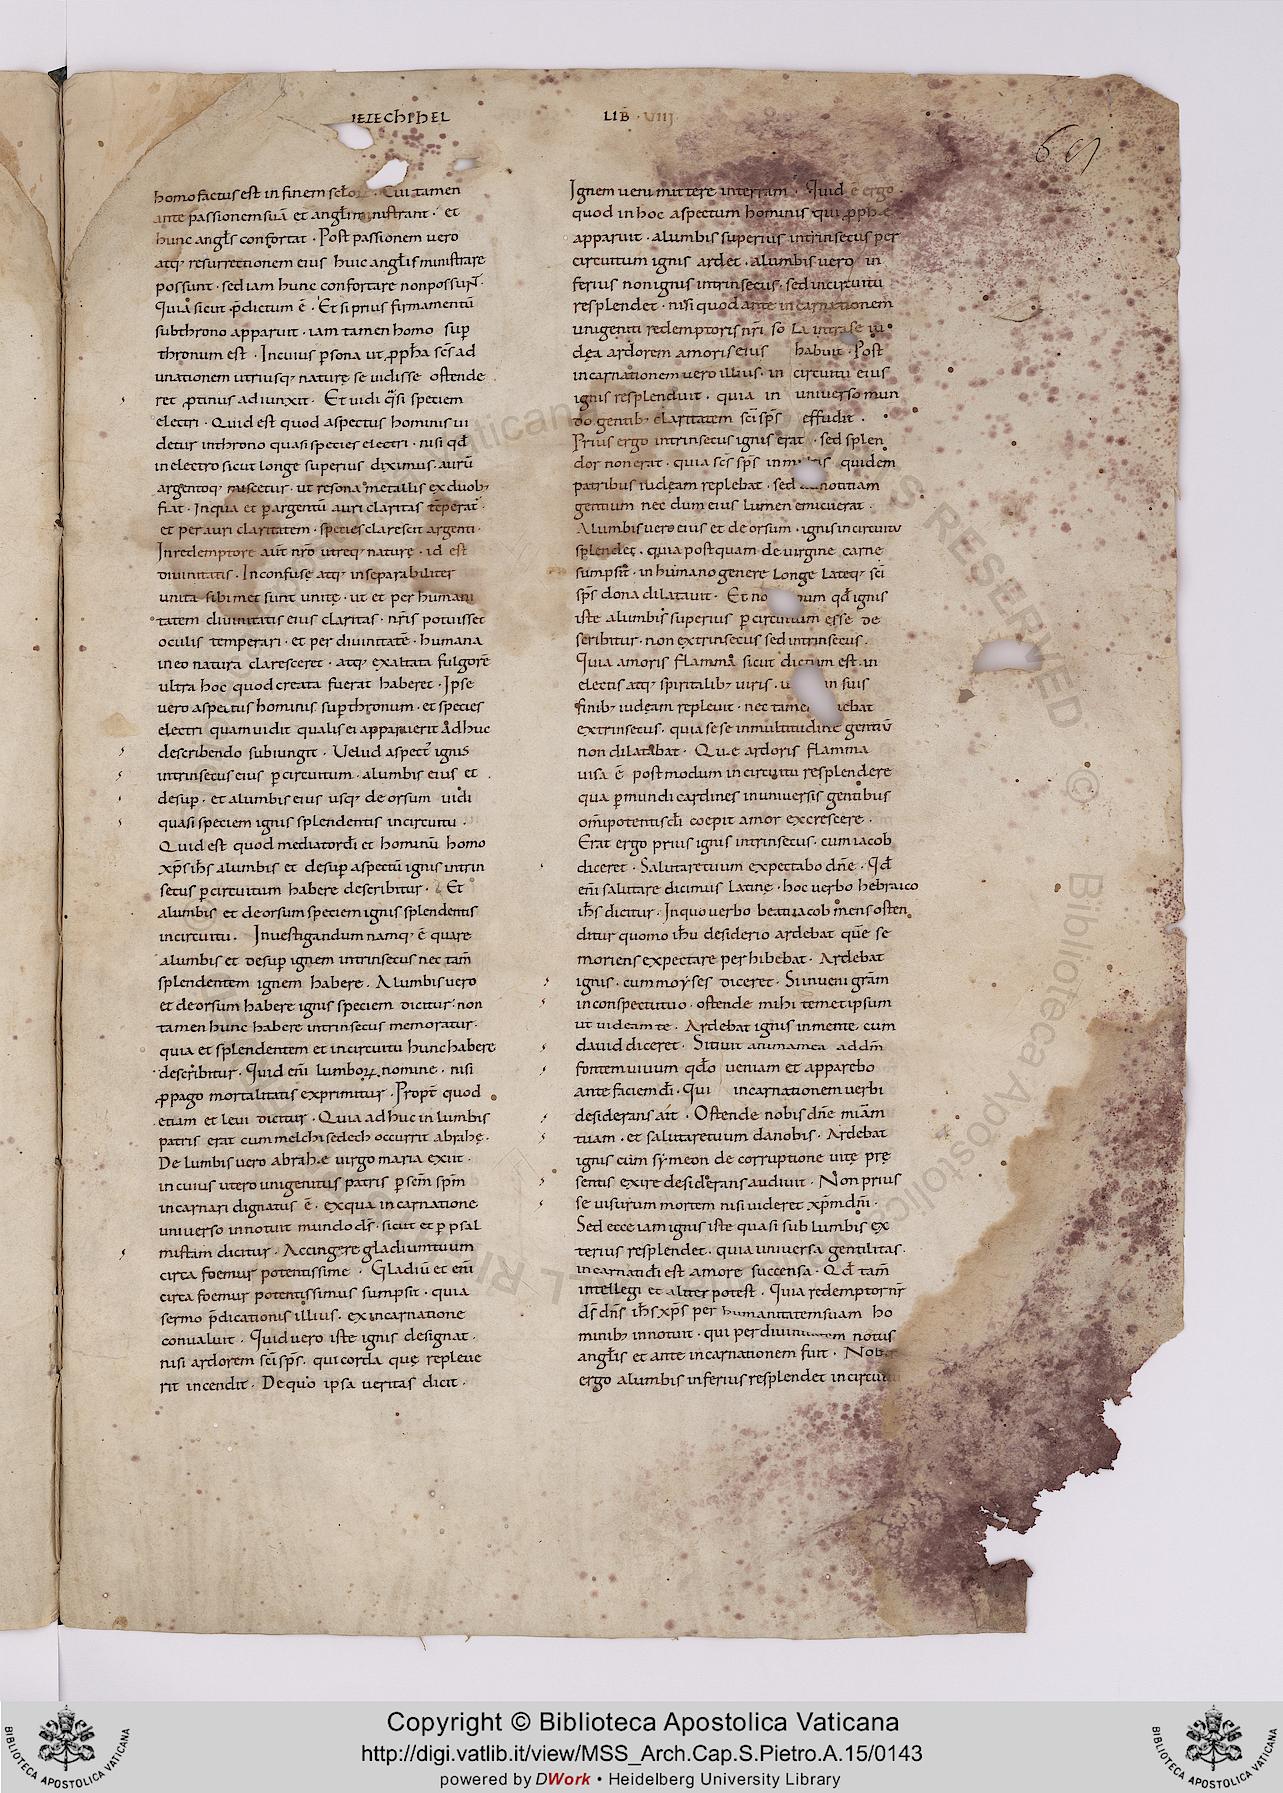 IEZECHIHEL LIB · VIII
69
homo factus est in finem scłoꝝ · Cui tamen
ante passionem suā et angli ministrant · et
hunc angls confortat · Post passionem uero
atq; resurrectionem eius huic angłis ministrare
possunt · sed iam hunc confortare non possunt ·
Quia sicut p̄dictum ē · Et si prius firmamentū
sub throno apparuit · iam tamen homo sup̄
thronum est · In cuius p̱sona ut ꝓph̄a scs̄ ad
unationem utriusq; naturę se uidisse ostende
ret ꝓtinus adiunxit · Et uidi q̄si speciem
electri · Quid est quod aspectus hominis ui
detur in throno quasi species electri · nisi qđ
in electro sicut longe superius diximus aurū
argentoq; miscetur · ut res ona metallis ex duob;
fiat · In qua et ꝑ argentū auri claritas tēperat᷑
et per auri claritatem · species clarescit argenti ·
In redemptore aut̄ nr̄o utręq; naturę · id est
diuinitatis · Inconfuse atq; inseparabiliter
unita sibimet sunt unitę · ut et per humani
tatem diuinitatis eius claritas · nr̄is potuisset
oculis temperari · et per diuinitatē · humana
in eo natura claresceret · atq; exaltata fulgorē
ultra hoc quod creata fuerat haberet · Ipse
uero aspectus hominis sup̱ thronum · et species
electri quam uidit qualis ei apparuerit adhuc
describendo subiungit · Velud aspect᷑ ignis
intrinsecus eius ꝑ circuitum · a lumbis eius et
desup̱ · et a lumbis eius usq; deorsum uidi
quasi speciem ignis splendentis in circuitu ·
Quid est quod mediator dī et hominū homo
xp̄s ih̄s a lumbis et desup̱ aspectū ignis intrin
secus ꝑ circuitum habere describitur · Et
a lumbis et deorsum speciem ignis splendentis
in circuitu · Inuestigandum namq; ē quare
a lumbis et desup̱ ignem intrinsecus nec tam̄
splendentem ignem habere · A lumbis uero
et deorsum habere ignis speciem dicitur · non
tamen hunc habere intrinsecus memoratur ·
quia et splendentem et in circuitu hunc habere
describitur · Quid eni lumboꝝ nomine · nisi
ꝓpago mortalitatis exprimitur · Propt̄ quod
etiam et leui dicitur · Quia adhuc in lumbis
patris erat cum melchisedech occurrit abrahę ·
De lumbis uero abrahę uirgo maria exiit ·
in cuius utero unigenitus patris ꝑ scm̄ spm̄
incarnari dignatus ē · ex qua incarnatione
uniuerso innotuit mundo ds̄ · sicut et ꝑ psal
mistam dicitur · Accingere gladium tuum
circa foemur potentissime · Gladiū et eni
circa foemur potentissimus sumpsit · quia
sermo p̄dicationis illius · ex incarnatione
conualuit · Quid uero iste ignis designat ·
nisi ardorem sci sps̄ · qui corda que repleue
rit incendit · De quo ipsa ueritas dicit ·
Ignem ueni mittere in terram · Quid ē ergo
quod in hoc aspectum hominis qui ꝓphę
apparuit · a lumbis superius intrinsecus per
circuitum ignis ardet · a lumbis uero in
ferius non ignis intrinsecus · sed in circuitu
resplendet · nisi quod ante incarnationem
unigeniti redemptoris nr̄i sola intra se iu
dęa ardorem amoris eius habuit · Post
incarnationem uero illius · in circuitu eius
ignis resplenduit · quia in uniuerso mun
do gentib; claritatem sci sps̄ effudit ·
Prius ergo intrinsecus ignis erat · sed splen
dor non erat · quia scs̄ sps̄ in multis quidem
patribus iudęam replebat · sed ad notitiam
gentium nec dum eius lumen emicuerat ·
A lumbis uero eius et deorsum · ignis in circuitu
splendet · quia postquam de uirgine carne
sumpsit · in humano genere longe lateq; sci
sps̄ dona dilatauit · Et no um qđ ignis
iste a lumbis superius ꝑ circuitum esse de
scribitur · non extrinsecus sed intrinsecus ·
Quia amoris flamma sicut dictum est in
electis atq; spiritalib; uiris · u in suis
finib; iudęam repleuit · nec tamen ebat
extrinsecus · quia sese in multitudine gentiū
non dilatabat · Quę ardoris flamma
uisa ē postmodum in circuitu resplendere
qua ꝑ mundi cardines in uniuersis gentibus
om̄ipotentis dī coepit amor excrescere ·
Erat ergo prius ignis intrinsecus · cum iacob
diceret · Salutare tuum expectabo dn̄e · Id
eni salutare dicimus latine · hoc uerbo hebraico
ih̄s dicitur · In quo uerbo beati iacob mens osten
ditur quomo ih̄u desiderio ardebat quē se
moriens expectare perhibebat · Ardebat
ignis · cum moyses diceret · Si inueni grām
in conspectu tuo · ostende mihi temetipsum
ut uideam te · Ardebat ignis in mente · cum
dauid diceret · Sitiuit anima mea ad dm̄
fontem uiuum qdo ueniam et apparebo
ante faciem dī · Qui incarnationem uerbi
desiderans ait · Ostende nobis dn̄e miām
tuam · et salutare tuum da nobis · Ardebat
ignis cum symeon de corruptione uitę prę
sentis exire desiderans audiuit · Non prius
se uisurum mortem nisi uideret xp̄m dm̄i ·
Sed ecce iam ignis iste quasi sub lumbis ex
terius resplendet · quia uniuersa gentilitas ·
incarnati dī est amore succensa · Qđ tam̄
intellegi et aliter potest · Quia redemptor nr̄
ds̄ dn̄s ih̄s xp̄s per humanitatem suam ho
minib; innotuit · qui per diuinitatem notus
angłis et ante incarnationem fuit · Nobis
ergo a lumbis inferius resplendet in circuitu
Copyright © Biblioteca Apostolica Vaticana
http://digi.vatlib.it/view/MSS_Arch.Cap.S.Pietro.A.15/0143
powered by DWork • Heidelberg University Library
BIBLIOTECA APOSTOLICA VATICANA
BIBLIOTECA APOSTOLICA VATICANA